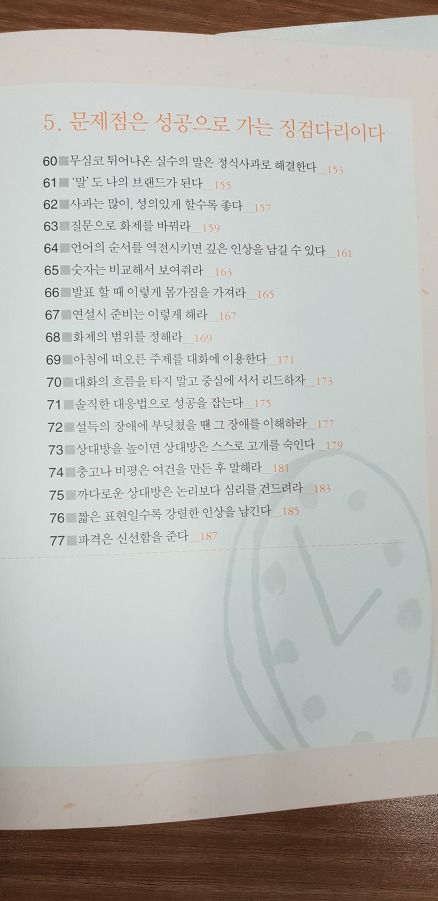 5. 문제점은 성공으로 가는 징검다리이다
60■무심코 튀어나온 실수의 말은 정식사과로 해결한다__153
61■'말' 도 나의 브랜드가 된다__155
62■사과는 많이, 성의있게 할수록 좋다__157
63■질문으로 화제를 바꿔라__159
64■언어의 순서를 역전시키면 깊은 인상을 남길 수 있다__161
65■숫자는 비교해서 보여줘라__163
66■발표 할 때 이렇게 몸가짐을 가져라__165
67■연설시 준비는 이렇게 해라__167
68■화제의 범위를 정해라__169
69■아침에 떠오른 주제를 대화에 이용한다__171
70■대화의 흐름을 타지 말고 중심에 서서 리드하자__173
71■솔직한 대응법으로 성공을 잡는다__175
72■설득의 장애에 부딪쳤을 땐 그 장애를 이해하라__177
73■상대방을 높이면 상대방은 스스로 고개를 숙인다__179
74■충고나 비평은 여건을 만든 후 말해라__181
75■까다로운 상대방은 논리보다 심리를 건드려라__183
76■짧은 표현일수록 강렬한 인상을 남긴다__185
77■파격은 신선함을 준다__187